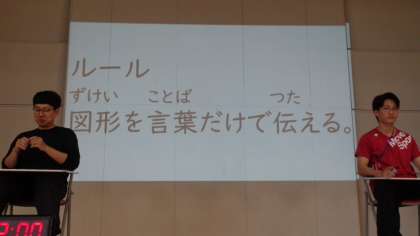 ルール
ずけい ことば つた
図形を言葉だけで伝える。
2:00